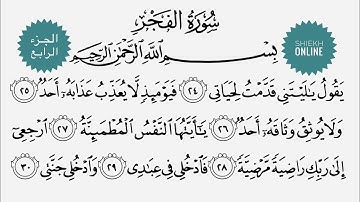 سُورَةُ الفَجْرِ
الجزء
الرابع
SHIEKH
ONLINE
بِسْمِ اللَّهِ الرَّحْمَٰنِ الرَّحِيمِ
يَقُولُ يَٰلَيْتَنِي قَدَّمْتُ لِحَيَاتِي ٢٤ فَيَوْمَئِذٍ لَّا يُعَذِّبُ عَذَابَهُۥٓ أَحَدٌ ٢٥
وَلَا يُوثِقُ وَثَاقَهُۥٓ أَحَدٌ ٢٦ يَٰٓأَيَّتُهَا النَّفْسُ الْمُطْمَئِنَّةُ ٢٧ ارْجِعِىٓ
إِلَىٰ رَبِّكِ رَاضِيَةً مَّرْضِيَّةً ٢٨ فَادْخُلِي فِي عِبَٰدِي ٢٩ وَادْخُلِي جَنَّتِي ٣٠